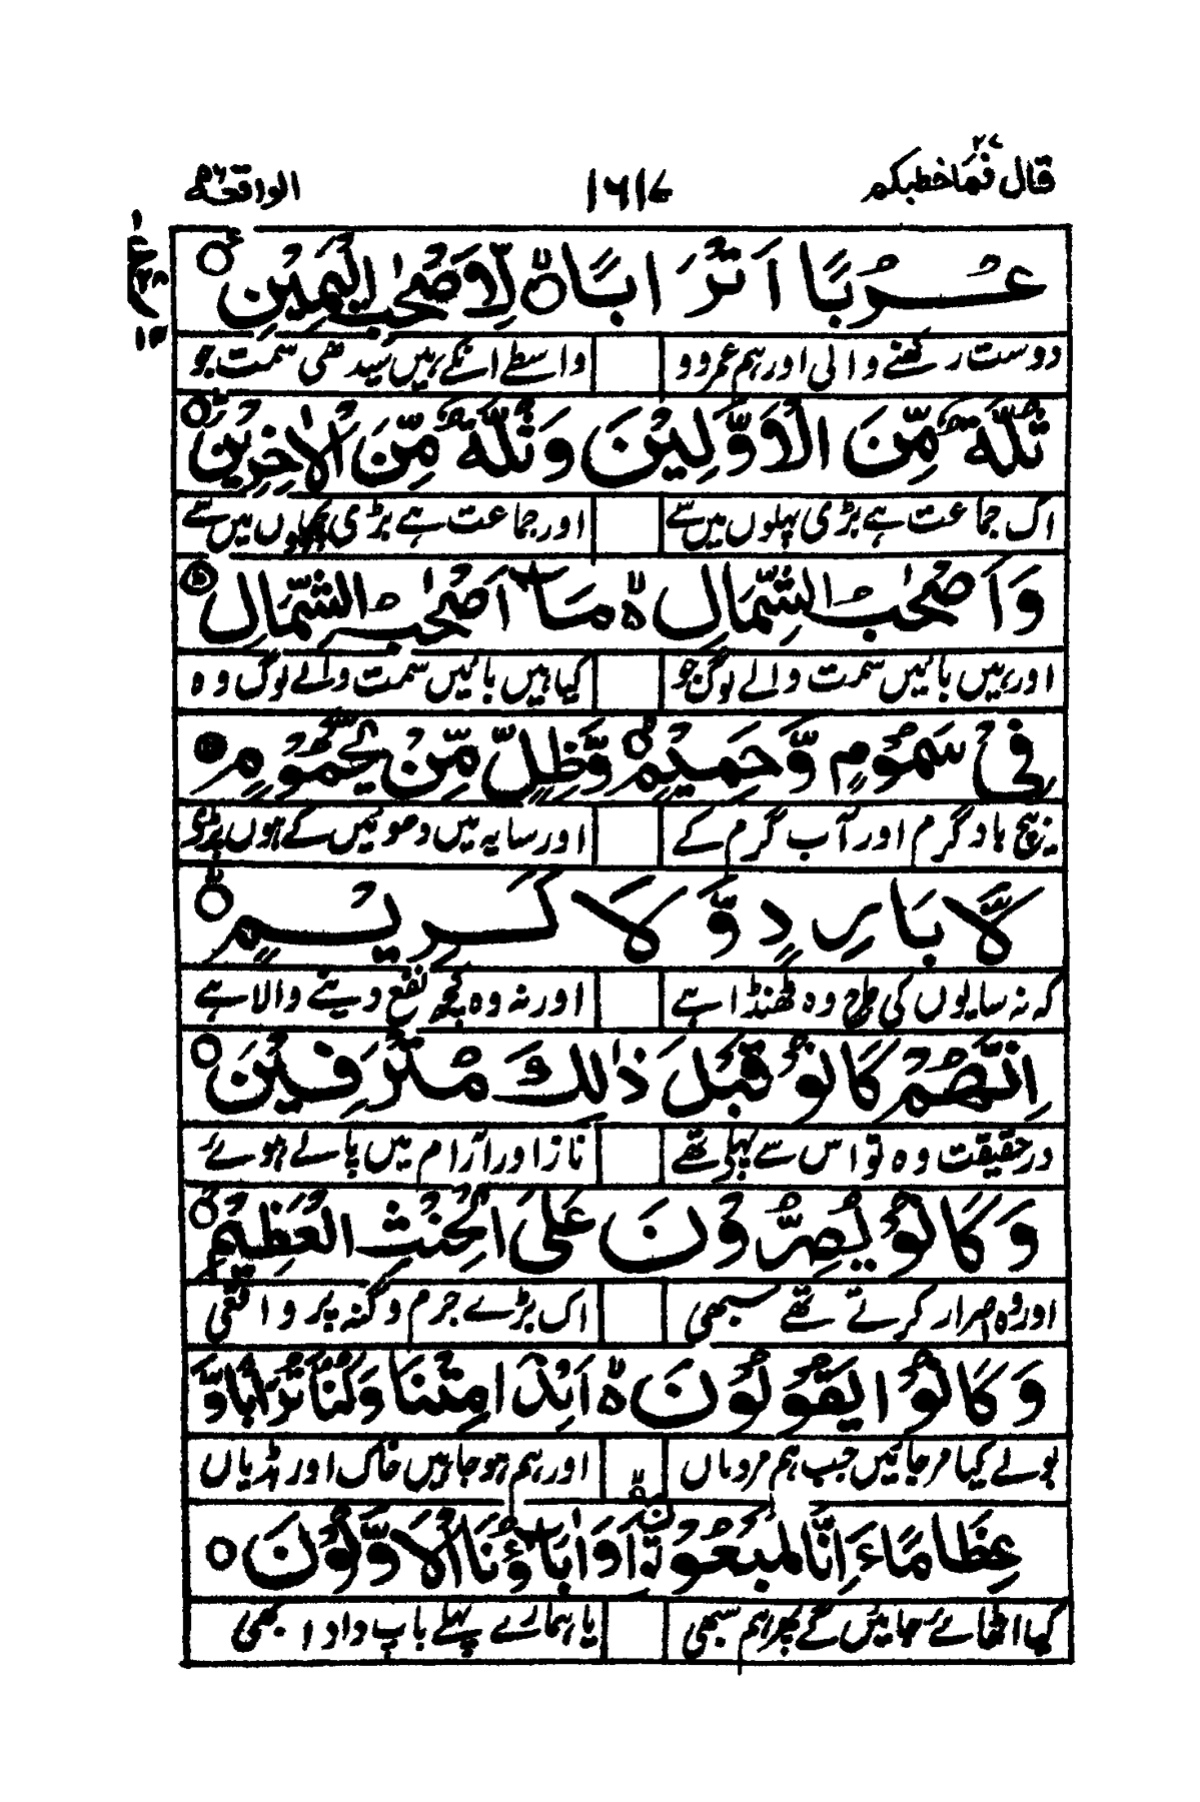 قال فما خطبکم ٢٧
١٦١٧
الواقعة ٥٦
عُرُبًا اَتْرَابًا ۙ لِّاَصْحٰبِ الْيَمِيْنِ
دوست رکھنے والی اور ہم عمر وو
واسطے انکے ہیں سیدھی سمت جو
ثُلَّةٌ مِّنَ الْاَوَّلِيْنَ وَثُلَّةٌ مِّنَ الْاٰخِرِيْنَ
اک جماعت ہے بڑی پہلوں میں سے
اور جماعت ہے بڑی پچھلوں میں سے
وَاَصْحٰبُ الشِّمَالِ ۙ مَآ اَصْحٰبُ الشِّمَالِ
اور ہیں بائیں سمت والے لوگ جو
کیا ہیں بائیں سمت والے لوگ وہ
فِيْ سَمُوْمٍ وَّحَمِيْمٍ وَّظِلٍّ مِّنْ يَّحْمُوْمٍ
بیچ باد گرم اور آب گرم کے
اور سایہ میں دھوئیں کے ہوں پڑے
لَّا بَارِدٍ وَّلَا كَرِيْمٍ
کہ نہ سایوں کی طرح وہ ٹھنڈا ہے
اور نہ وہ کچھ نفع دینے والا ہے
اِنَّهُمْ كَانُوْ قَبْلَ ذٰلِكَ مُتْرَفِيْنَ
درحقیقت وہ تو اس سے پہلے تھے
ناز اور آرام میں پالے ہوئے
وَكَانُوْ يُصِرُّوْنَ عَلَى الْحِنْثِ الْعَظِيْمِ
اور وہ اصرار کرتے تھے سبھی
اک بڑے جرم و گنہ پر واقعی
وَكَانُوْا يَقُوْلُوْنَ ۙ اَئِذَا مِتْنَا وَكُنَّا تُرَابًا وَّ
بولے کیا مر جائیں جب ہم مردماں
اور ہم ہو جائیں خاک اور ہڈیاں
عِظَامًا ءَاِنَّا لَمَبْعُوْثُوْنَ اَوَاٰبَآؤُنَا الْاَوَّلُوْنَ
کیا اٹھائے جائیں گے پھر ہم سبھی
یا ہمارے پہلے باپ دادا بھی